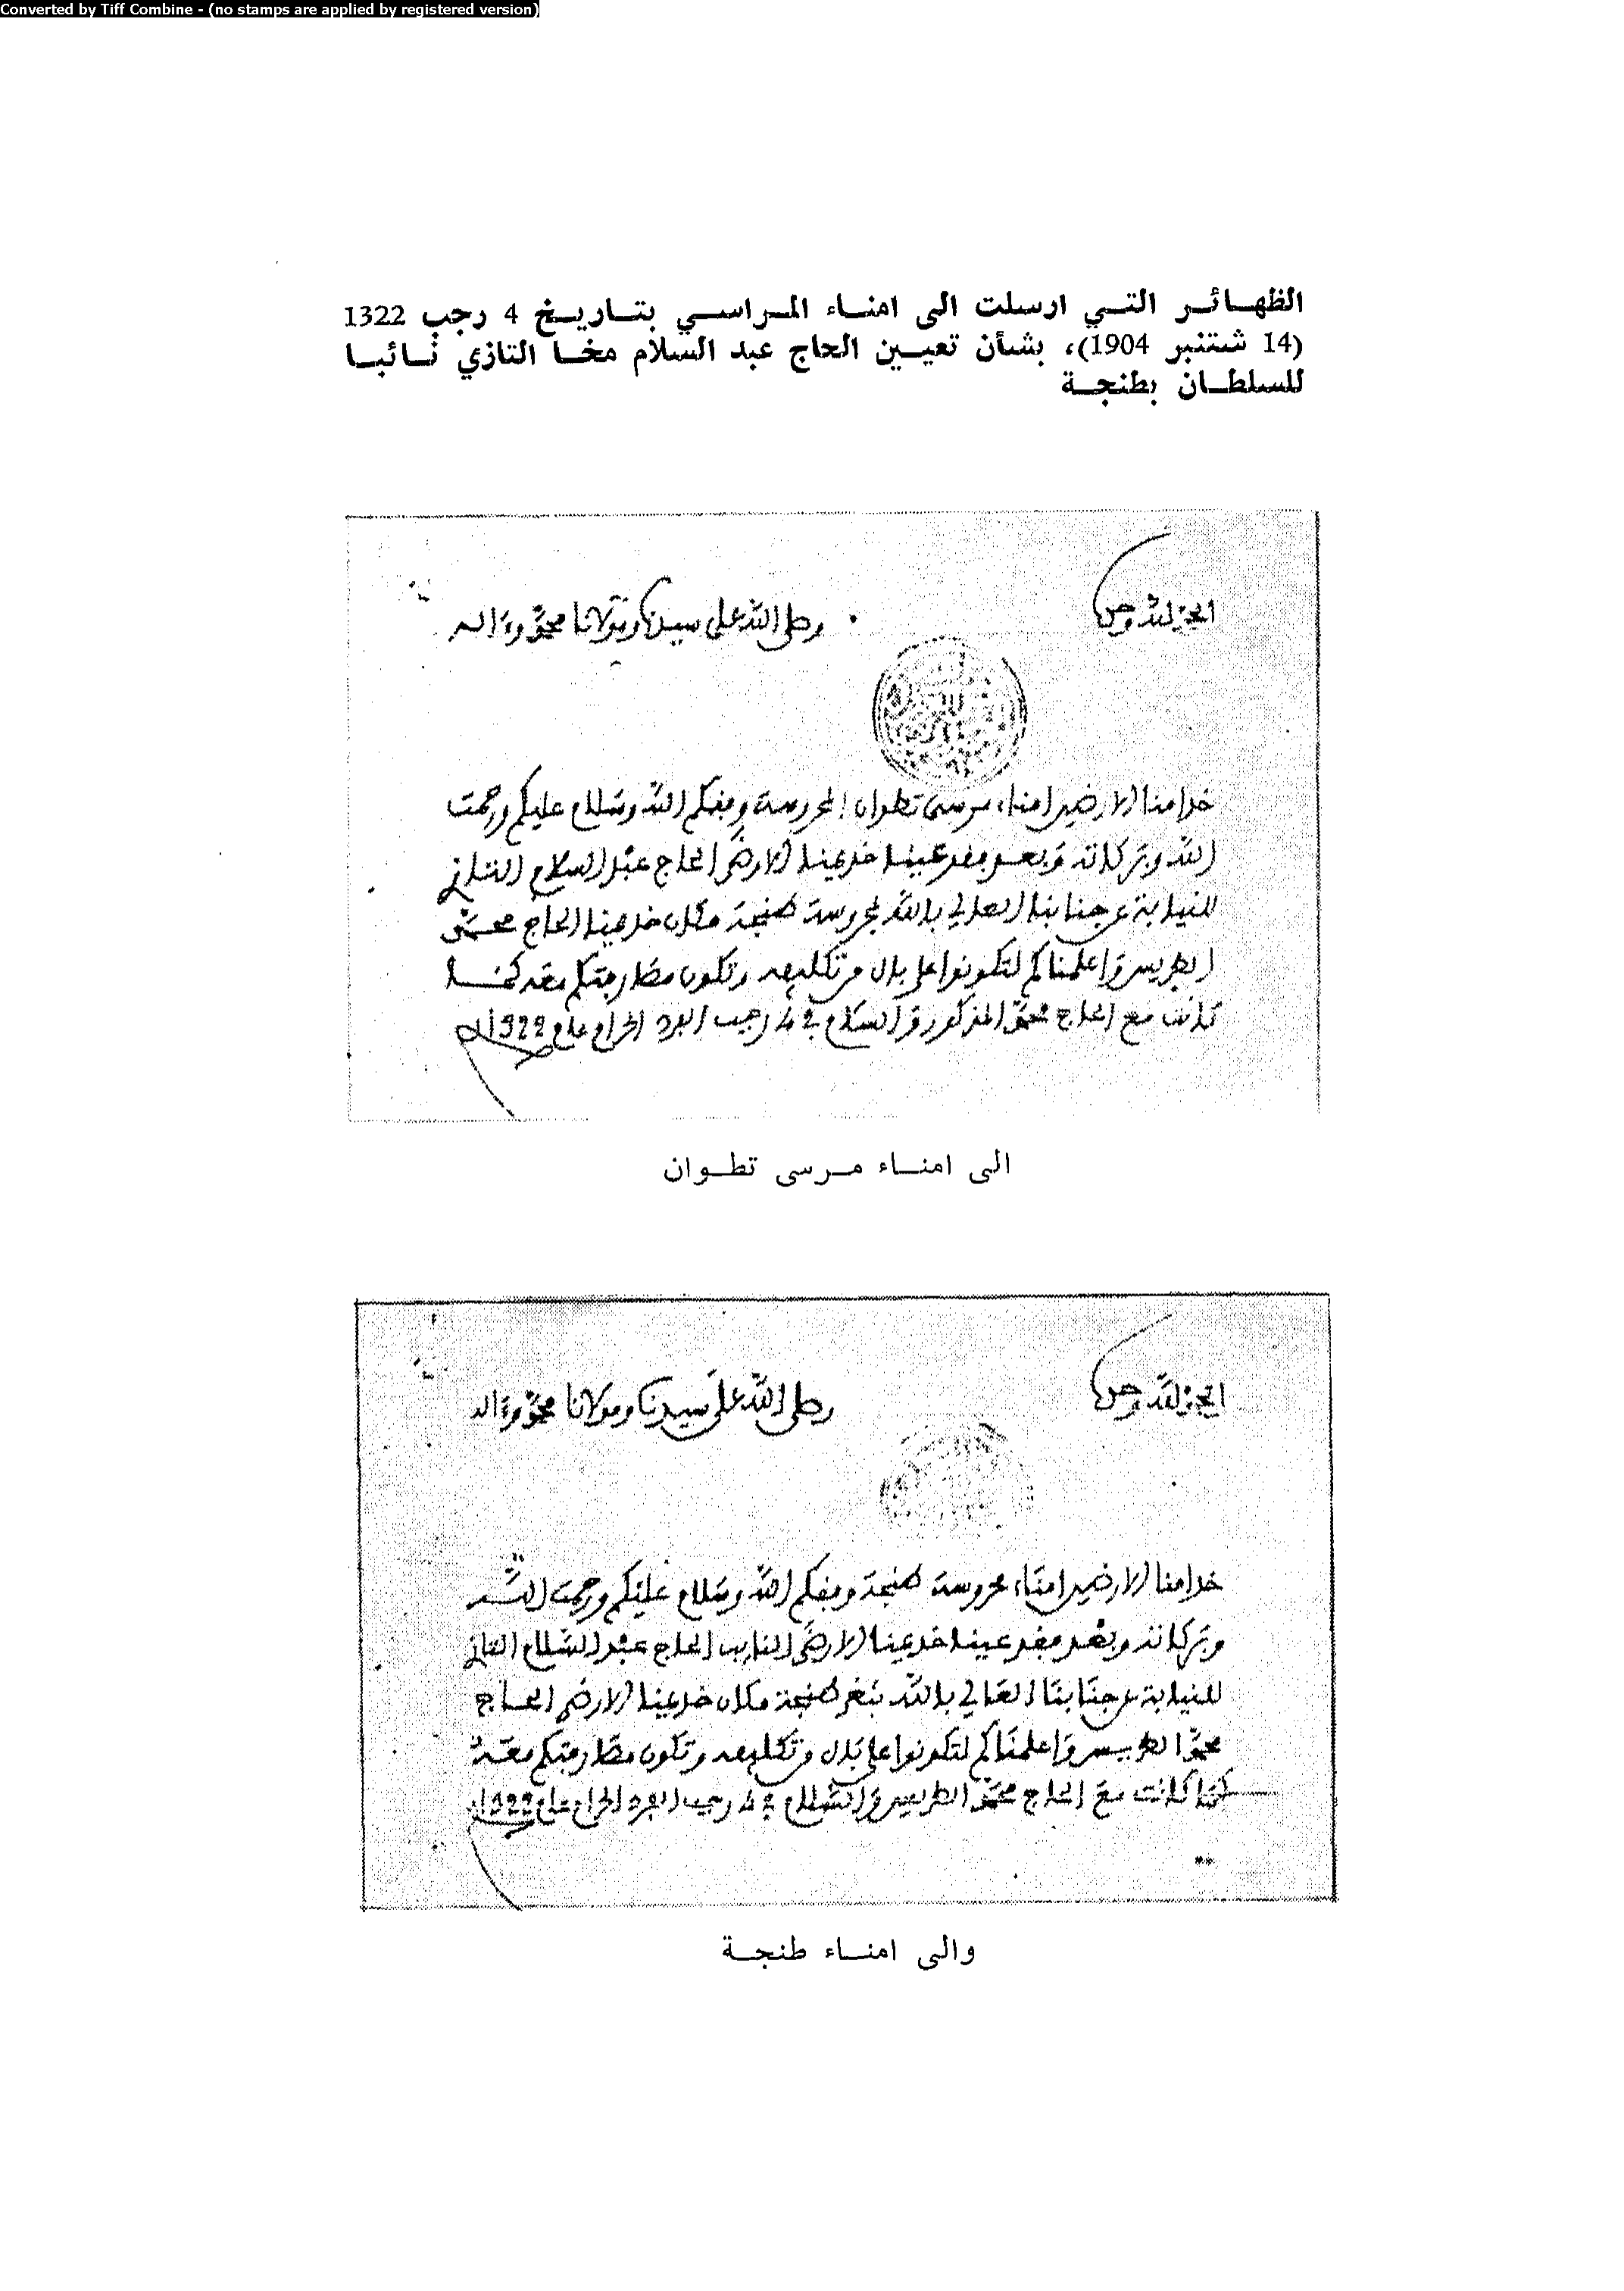 Converted by Tiff Combine - (no stamps are applied by registered version)
الظهائر التي ارسلت الى امناء المراسي بتاريخ 4 رجب 1322
(14 شتنبر 1904)، بشأن تعيين الحاج عبد السلام مخا التازي نائبا
للسلطان بطنجة
الحمد لله وحده
وصلى الله على سيدنا ومولانا محمد وءاله
خدامنا الارضين امناء مرسى تطوان المحروسة وفقكم الله وسلام عليكم ورحمت
الله وبركاته وبعد فقد عينا خديمنا الارضى الحاج عبد السلام التازي
للنيابة عن جنابنا العالي بالله بمحروسة طنجة مكان خديمنا الحاج محمد
الطريس واعلمناكم لتكونوا على بال من تكليفه وتكون مفاوضتكم معه كما
كانت مع الحاج محمد المذكور والسلام في 4 رجب الفرد الحرام عام 1322
الى امناء مرسى تطوان
الحمد لله وحده
وصلى الله على سيدنا ومولانا محمد وءاله
خدامنا الارضين امناء محروسة طنجة وفقكم الله وسلام عليكم ورحمت الله
وبركاته وبعد فقد عينا خديمنا الارضى النايب الحاج عبد السلام التازي
للنيابة عن جنابنا العالي بالله بثغر طنجة مكان خديمنا الارضى الحاج
محمد الطريس واعلمناكم لتكونوا على بال من تكليفه وتكون مفاوضتكم معه
كما كانت مع الحاج محمد الطريس والسلام في 4 رجب الفرد الحرام عام 1322
والى امناء طنجة